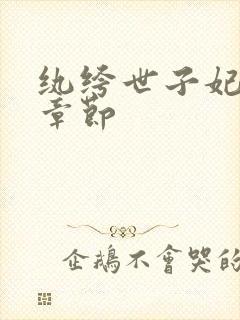 纨绔世子妃
章节
企鵝不會哭的